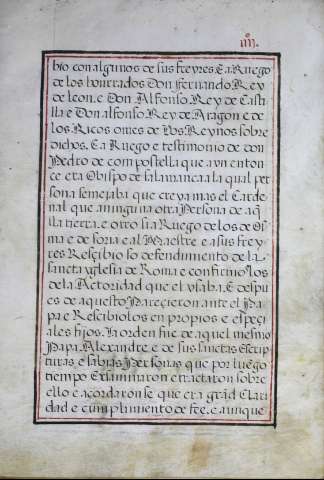 iiij.
bio con algunos de sus freyres. E a Ruego
de los hourrados Don fernando Rey
de leon. e Don Alfonso Rey de Casti
lla e Don alfonso Rey de Aragon e de
los Ricos omes de los Reynos sobre
dichos. E a Ruego e testimonio de don
Pedro de compostella que a un enton
ce era Obispo de salamanca a la qual per
sona semejaba que creya mas el Carde
nal que a ninguna otra Persona de aq̃
lla tierra. e otro si a Ruego de los de os
ma e de soria e al Maestre e a sus frey
res Resçibio so defendimiento de la
sancta yglesia de Roma e confirmolos
de la Actoridad que el vsaba. E despu
es de aquesto Pareçieron ante el Pa
pa e Resçibiolos en propios e espeçi
ales fijos. la orden fue de aquel mesmo
Papa Alexandre e de sus sanctas escrip
turas e sabias Personas que por luego
tiempo Examinaron e tractaron sobre
ello e acordaron se que era grãd Clari
dad e cumplimiento de fee. e aunque